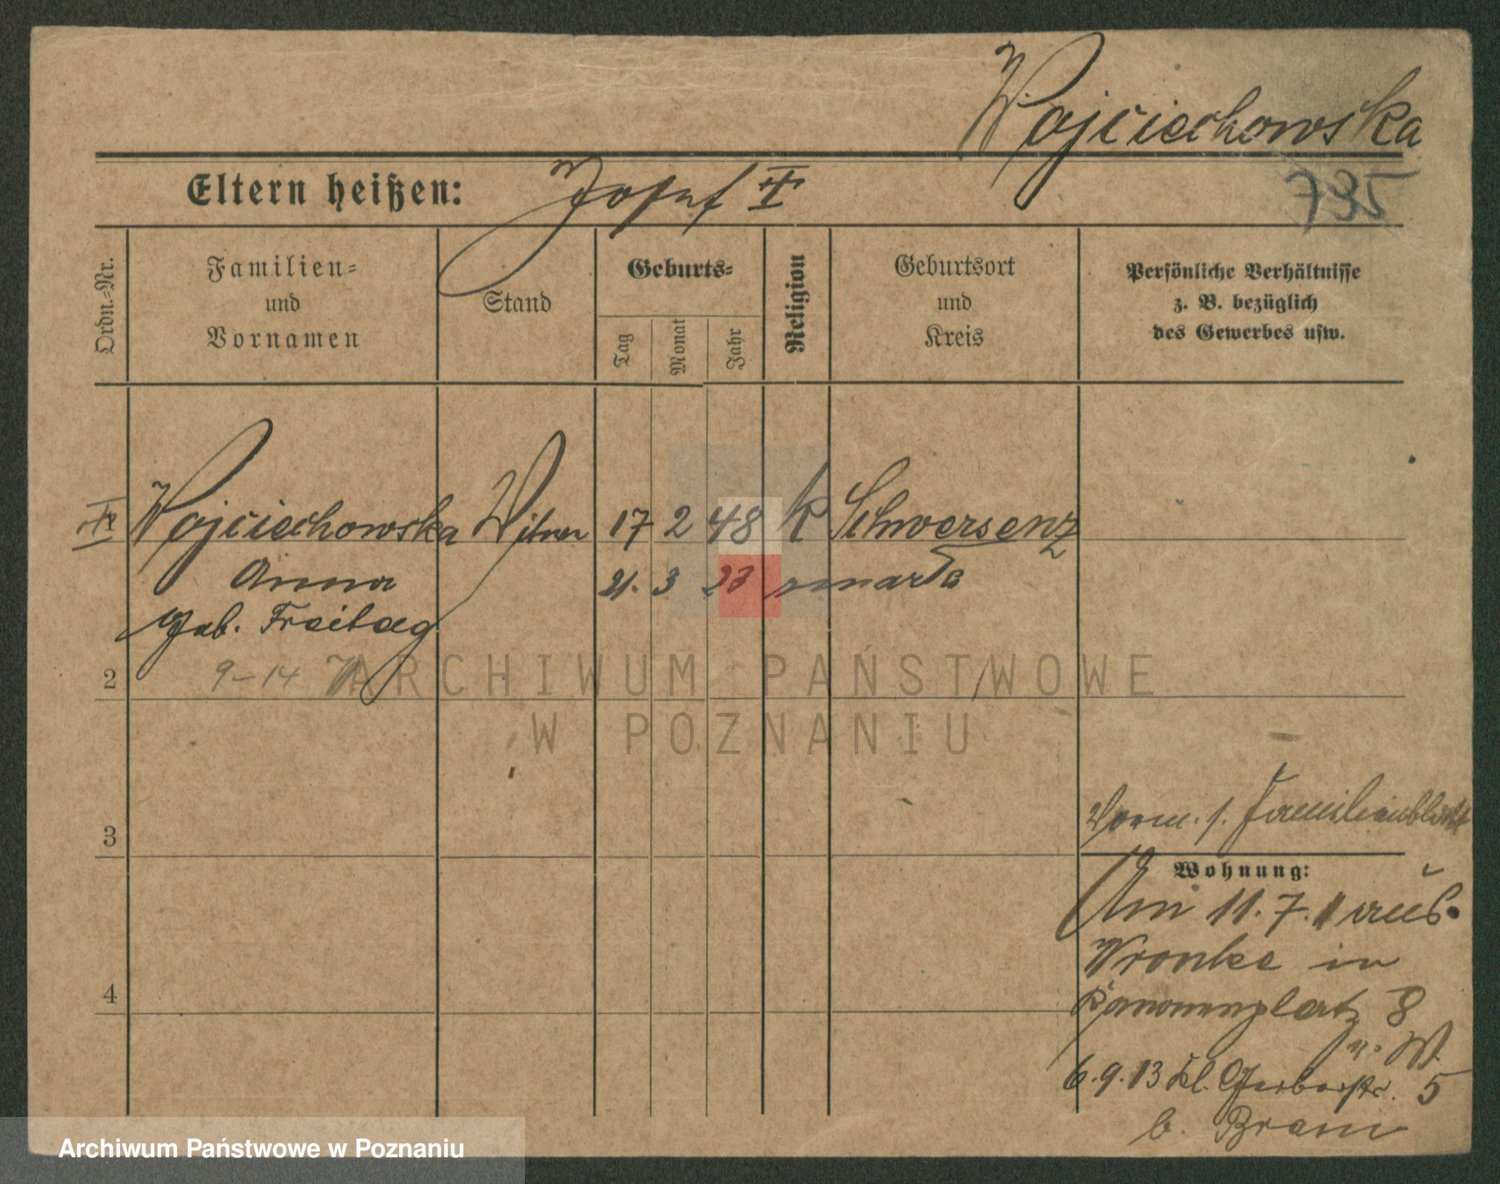 Wojciechowska
Eltern heißen: Josef
785
Ordn.=Nr.
Familien=
und
Vornamen
Stand
Geburts=
Tag
Monat
Jahr
Religion
Geburtsort
und
Kreis
Persönliche Verhältnisse
z. B. bezüglich
des Gewerbes usw.
Wojciechowska Witwe 17 2 48 k Schwersenz
Anna 21. 3 23
geb. Freitag
9-14
2
3
Vorm. s. Familienblatt
Wohnung:
Am 11. 7. 11 aus
Wronke in
4
Kanonenplatz 8
n. W.
6. 9. 13 kl. Gerberstr. 5
b.
ARCHIWUM PAŃSTWOWE
W POZNANIU
Archiwum Państwowe w Poznaniu